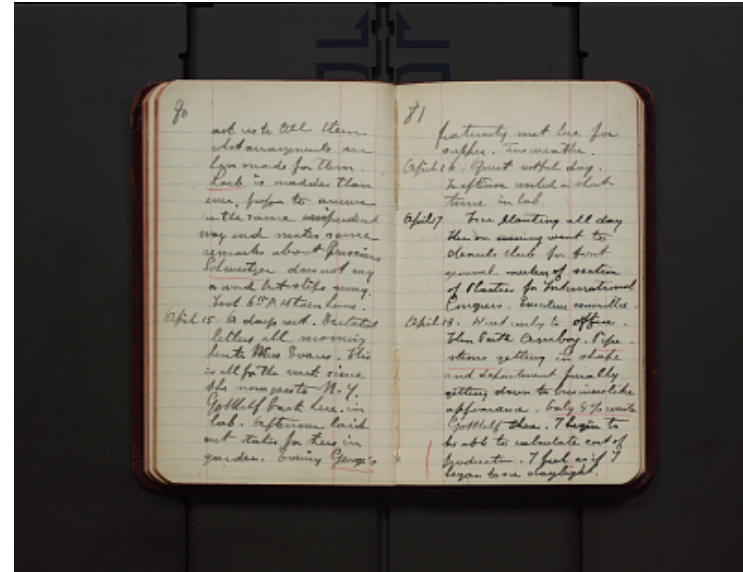 80
ask us to tell them
what arrangements are
been made for them.
Loeb is madder than
ever, Prefers to answer
in the same impudent
way and makes some
remarks about Prussians
Schweitzer does not say
a word but slips away.
Took 6th P.M. train home.
April 15. A day's rest. Dictated
letters all morning
to Miss Evans. This
is all for the week since
she now goes to N.Y.
Gotthelf back here. in
lab. Afternoon laid
out stakes for trees in
garden. Evening George's
81
fraternity met here for
supper. Fine weather.
April 16. Quiet restful day.
In afternoon worked a short
time in lab.
April 17 Tree Planting all day
then in evening went to
Chemists Club for first
general meeting of section
of Plastics for International
Congress. Executive committee.
April 18. Went early to office.
then Perth Amboy.
getting in shape
and Department finally
getting down to businesslike
appearance. Only 4% waste
Gotthelf there. I begin to
be able to calculate cost of
production. I feel as if I
began to see daylight.